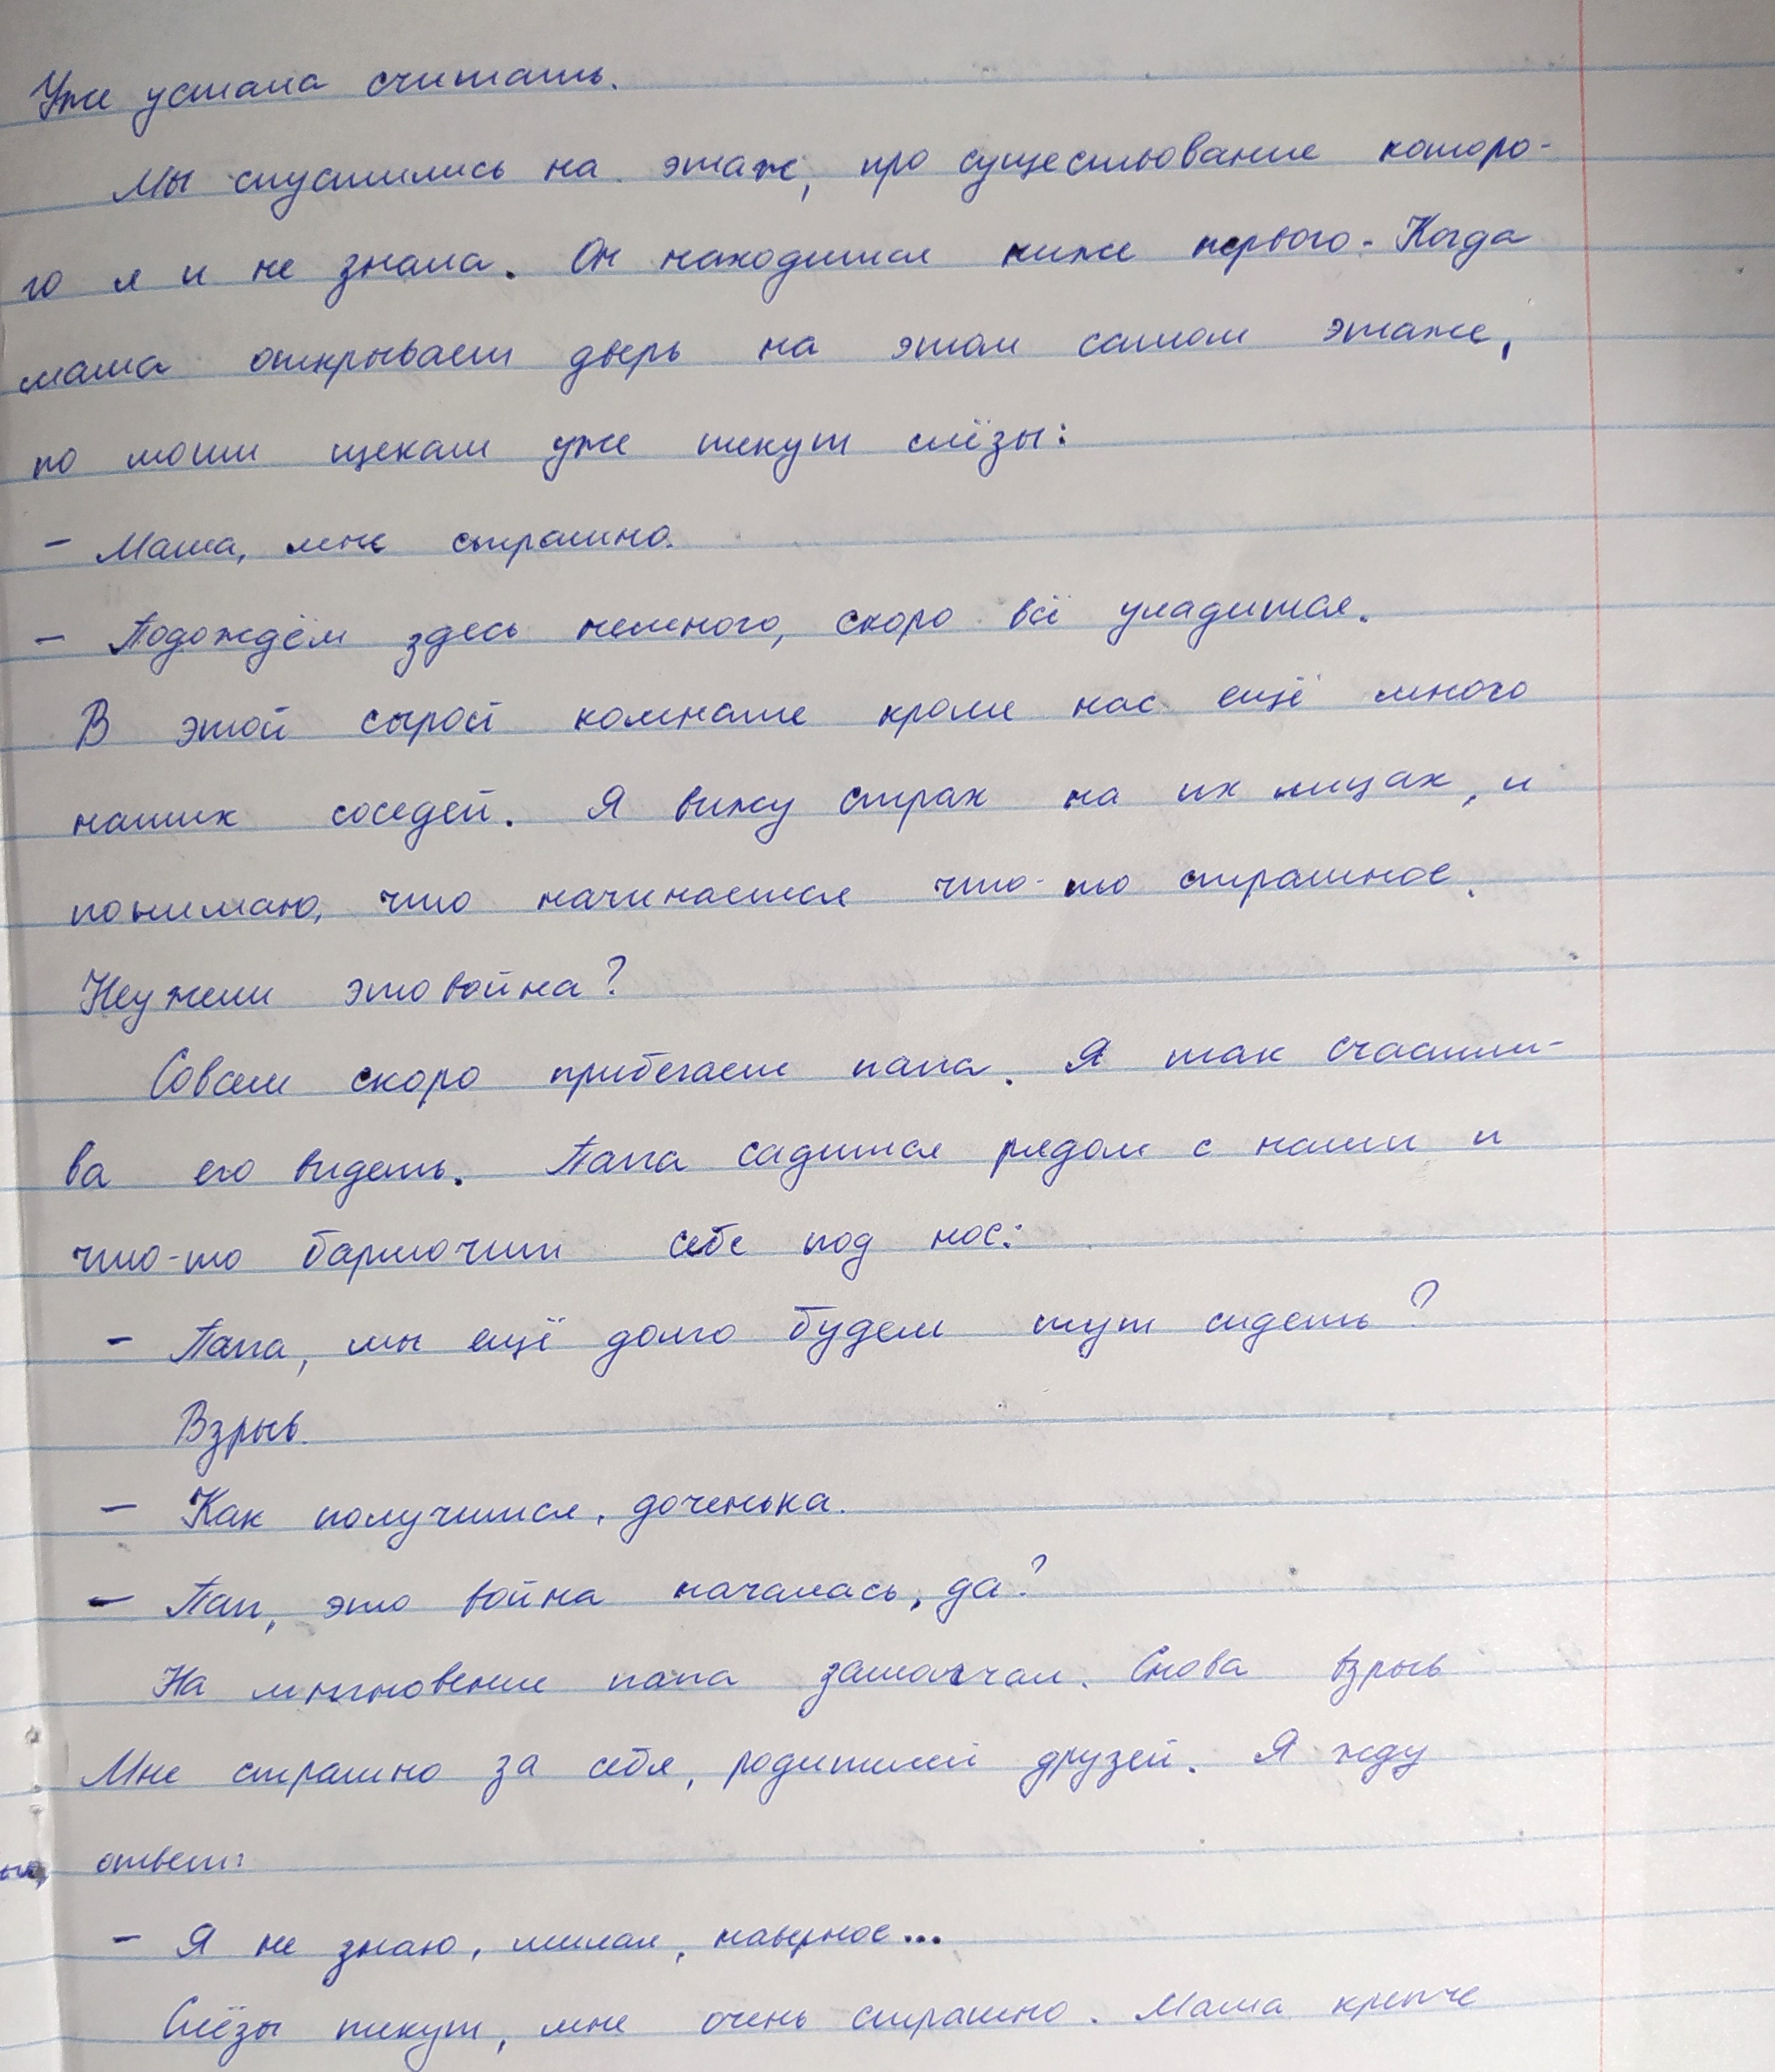 Уже устала считать.
Мы спустились на этаж, про существование которо-
го я и не знала. Он находится ниже первого. Когда
мама открывает дверь на этом самом этаже,
по моим щекам уже текут слёзы:
- Мама, мне страшно.
- Подождём здесь немного, скоро всё уладится.
В этой сырой комнате кроме нас ещё много
наших соседей. Я вижу страх на их лицах, и
понимаю, что начинается что-то страшное.
Неужели это война?
Совсем скоро прибегает папа. Я так счастли-
ва его видеть. Папа садится рядом с нами и
что-то бармочит себе под нос:
- Папа, мы ещё долго будем тут сидеть?
Взрыв.
- Как получится, доченька.
- Пап, это война началась, да?
На мгновение папа замолчал. Снова взрыв
Мне страшно за себя, родителей друзей. Я жду
ответ:
- Я не знаю, милая, наверное...
Слёзы текут, мне очень страшно. Мама крепче